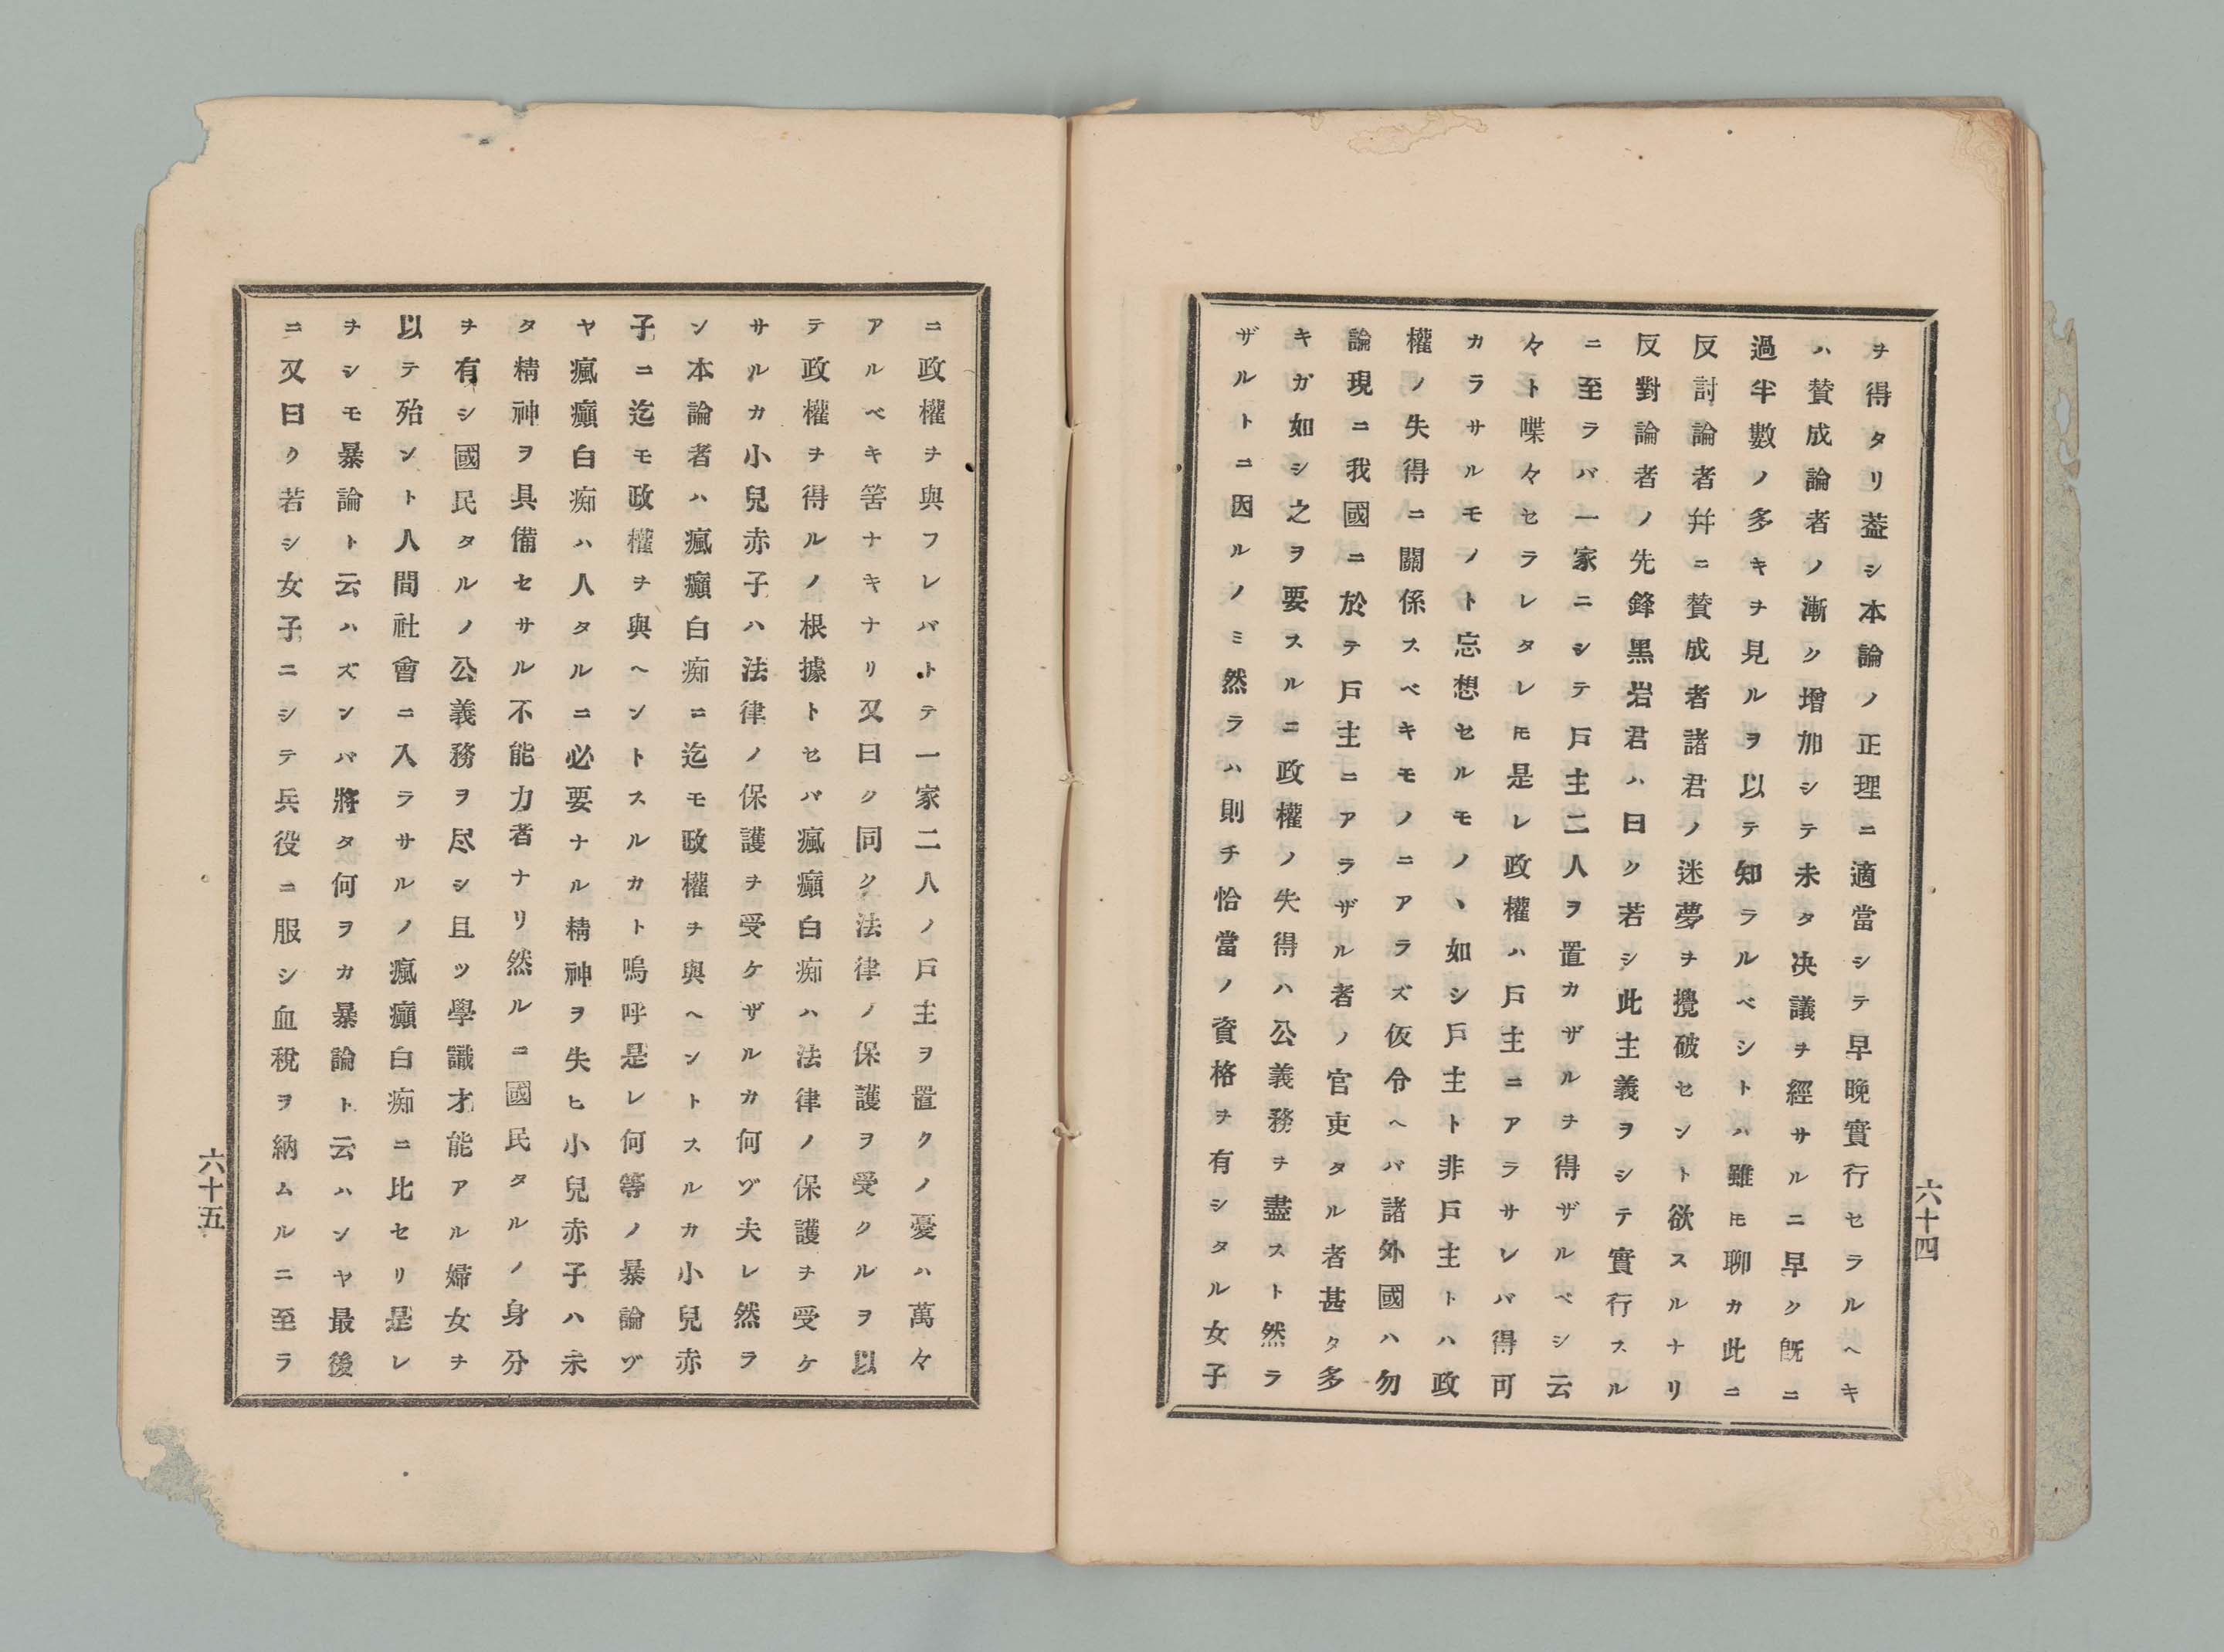 ヲ得タリ蓋シ本論ノ正理ニ適當シテ早晩實行セラルヘキ
ハ賛成論者ノ漸ク増加シテ未タ决議ヲ經サルニ早ク既ニ
過半數ノ多キヲ見ルヲ以テ知ラルベシトハ雖モ聊カ此ニ
反討論者幷ニ賛成者諸君ノ迷夢ヲ攪破セント欲スルナリ
反對論者ノ先鋒黒岩君ハ曰ク若シ此主義ヲシテ實行スル
ニ至ラバ一家ニシテ戸主二人ヲ置カザルヲ得ザルベシ云
々ト喋々セラレタレモ是レ政權ハ戸主ニアラサレバ得可
カラサルモノト忘想セルモノヽ如シ戸主ト非戸主トハ政
權ノ失得ニ關係スベキモノニアラズ仮令ヘバ諸外國ハ勿
論現ニ我國ニ於テ戸主ニアラザル者ノ官吏タル者甚タ多
キガ如シ之ヲ要スルニ政權ノ失得ハ公義務ヲ盡スト然ラ
ザルトニ因ルノミ然ラハ則チ恰當ノ資格ヲ有シタル女子
六十四
ニ政權ヲ與フレバトテ一家二人ノ戸主ヲ置クノ憂ハ萬々
アルベキ筈ナキナリ又曰ク同ク法律ノ保護ヲ受クルヲ以
テ政權ヲ得ルノ根據トセバ瘋癲白痴ハ法律ノ保護ヲ受ケ
サルカ小兒赤子ハ法律ノ保護ヲ受ケザルカ何ヅ夫レ然ラ
ン本論者ハ瘋癲白痴ニ迄モ政權ヲ與ヘントスルカ小兒赤
子ニ迄モ政權ヲ與ヘントスルカト嗚呼是レ何等ノ暴論ヅ
ヤ瘋癲白痴ハ人タルニ必要ナル精神ヲ失ヒ小兒赤子ハ未
タ精神ヲ具備セサル不能力者ナリ然ルニ國民タルノ身分
ヲ有シ國民タルノ公義務ヲ尽シ且ツ學識才能アル婦女ヲ
以テ殆ント人間社會ニ入ラサルノ瘋癲白痴ニ比セリ是レ
ヲシモ暴論ト云ハズンバ將タ何ヲカ暴論ト云ハンヤ最後
ニ又曰ク若シ女子ニシテ兵役ニ服シ血税ヲ納ムルニ至ラ
六十五